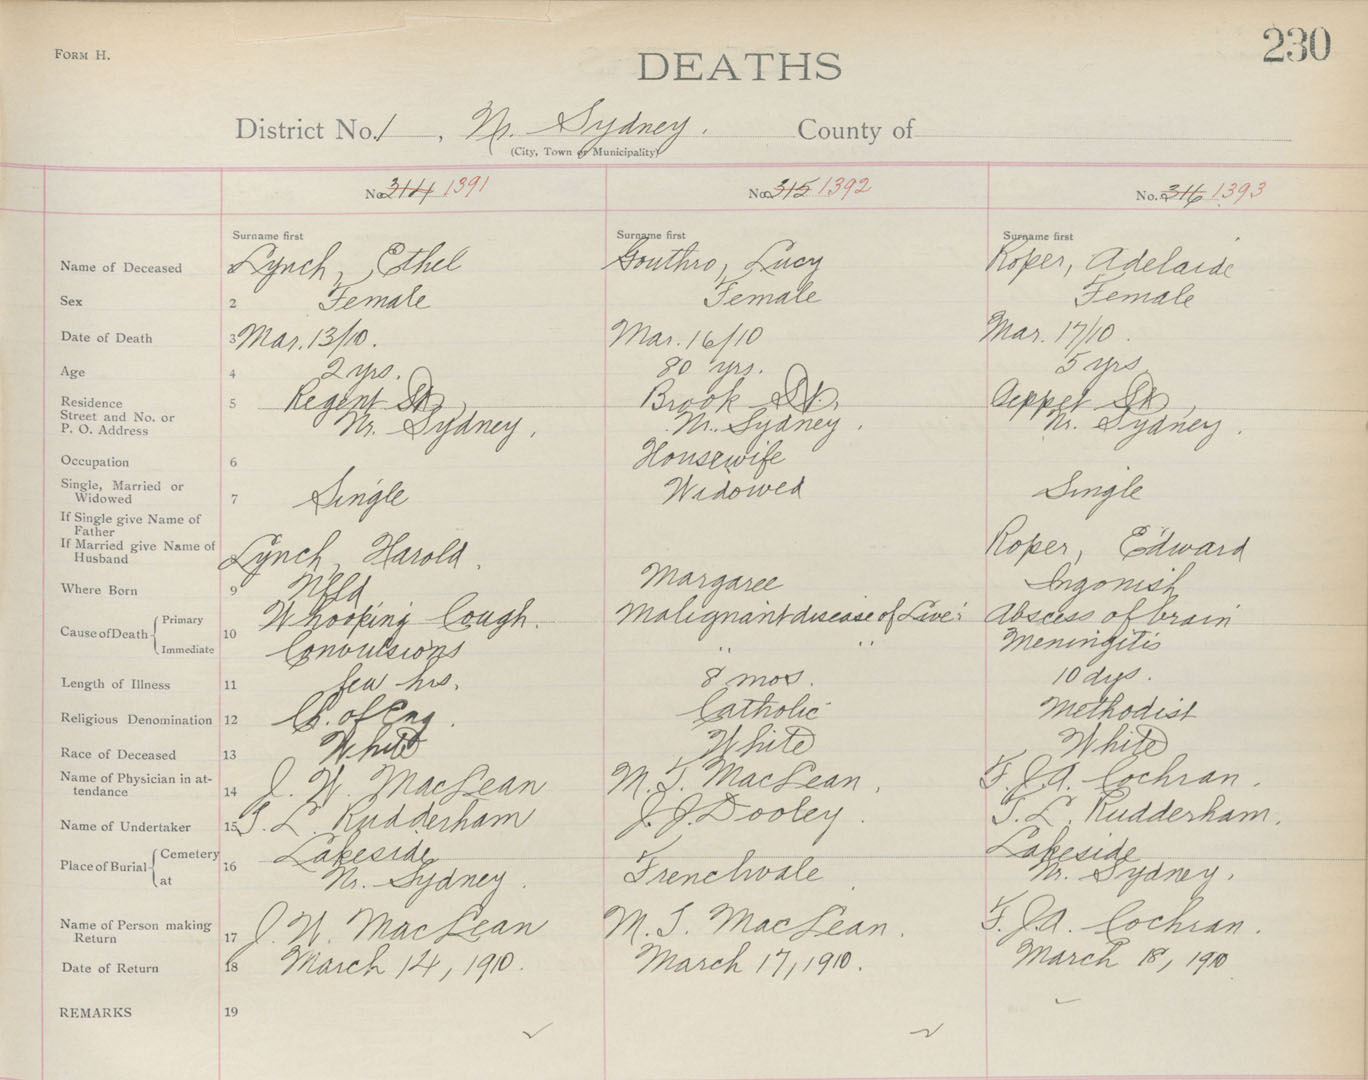 FORM H.
230
DEATHS
District No. 1, Nr. Sydney. County of
(City, Town or Municipality)
No. 314 1391
No. 315 1392
No. 316 1393
Surname first
Surname first
Surname first
Name of Deceased Lynch, Ethel Gouthro, Lucy Roper, Adelaide
Sex 2 Female Female Female
Date of Death 3 Mar. 13/10. Mar. 16/10 Mar. 17/10.
Age 4 2 yrs. 80 yrs. 5 yrs
Residence 5 Regent St, Brook St, St,
Street and No. or
P. O. Address Nr. Sydney. Nr. Sydney. Nr. Sydney.
Occupation 6 Housewife
Single, Married or
Widowed 7 Single Widowed Single
If Single give Name of
Father
If Married give Name of
Husband Lynch, Harold. Roper, Edward
Where Born 9 Nfld Margaree Ingonish
Cause of Death Primary 10 Whooping Cough. Malignant disease of Liver Abscess of brain
Immediate Convulsions " " Meningitis
Length of Illness 11 few hrs. 8 mos. 10 dys.
Religious Denomination 12 Ch. of Eng. Catholic Methodist
Race of Deceased 13 White White White
Name of Physician in at-
tendance 14 J. W. MacLean M. T. MacLean, F. J. A. Cochran.
Name of Undertaker 15 T. L. Rudderham J. J. Dooley. T. L. Rudderham.
Place of Burial Cemetery 16 Lakeside Frenchvale Lakeside
at Nr. Sydney. Nr. Sydney.
Name of Person making
Return 17 J. W. MacLean M. T. MacLean. F. J. A. Cochran.
Date of Return 18 March 14, 1910. March 17, 1910. March 18, 1910
REMARKS 19